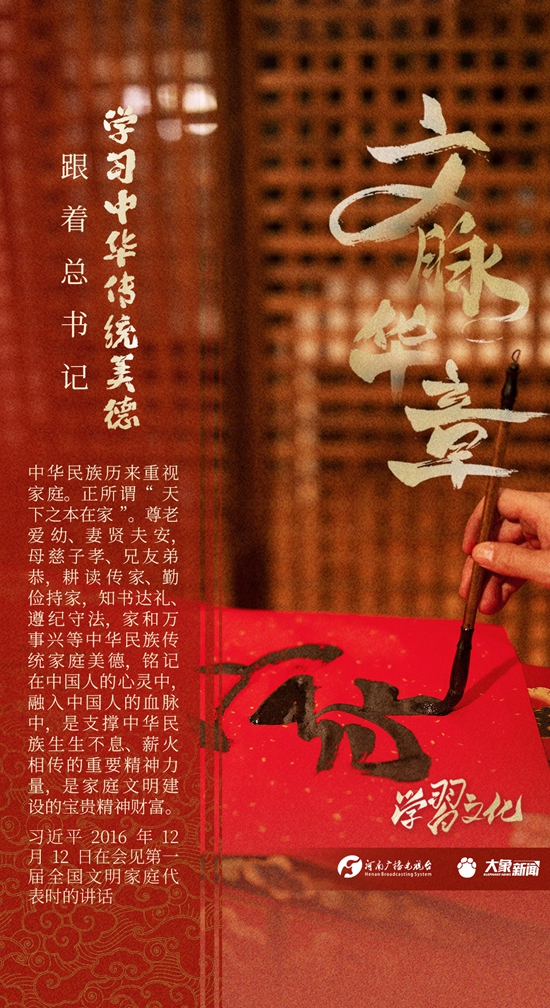 文脉华章
学习中华传统美德
跟着总书记
中华民族历来重视
家庭。正所谓“天
下之本在家”。尊老
爱幼、妻贤夫安,
母慈子孝、兄友弟
恭，耕读传家、勤
俭持家，知书达礼、
遵纪守法，家和万
事兴等中华民族传
统家庭美德，铭记
在中国人的心灵中,
融入中国人的血脉
中，是支撑中华民
族生生不息、薪火
相传的重要精神力
量，是家庭文明建
设的宝贵精神财富。
习近平 2016 年 12
月 12 日在会见第一
届全国文明家庭代
表时的讲话
学習文化
河南广播电视台
Henan Broadcasting System
大象新闻
ELEPHANT NEWS